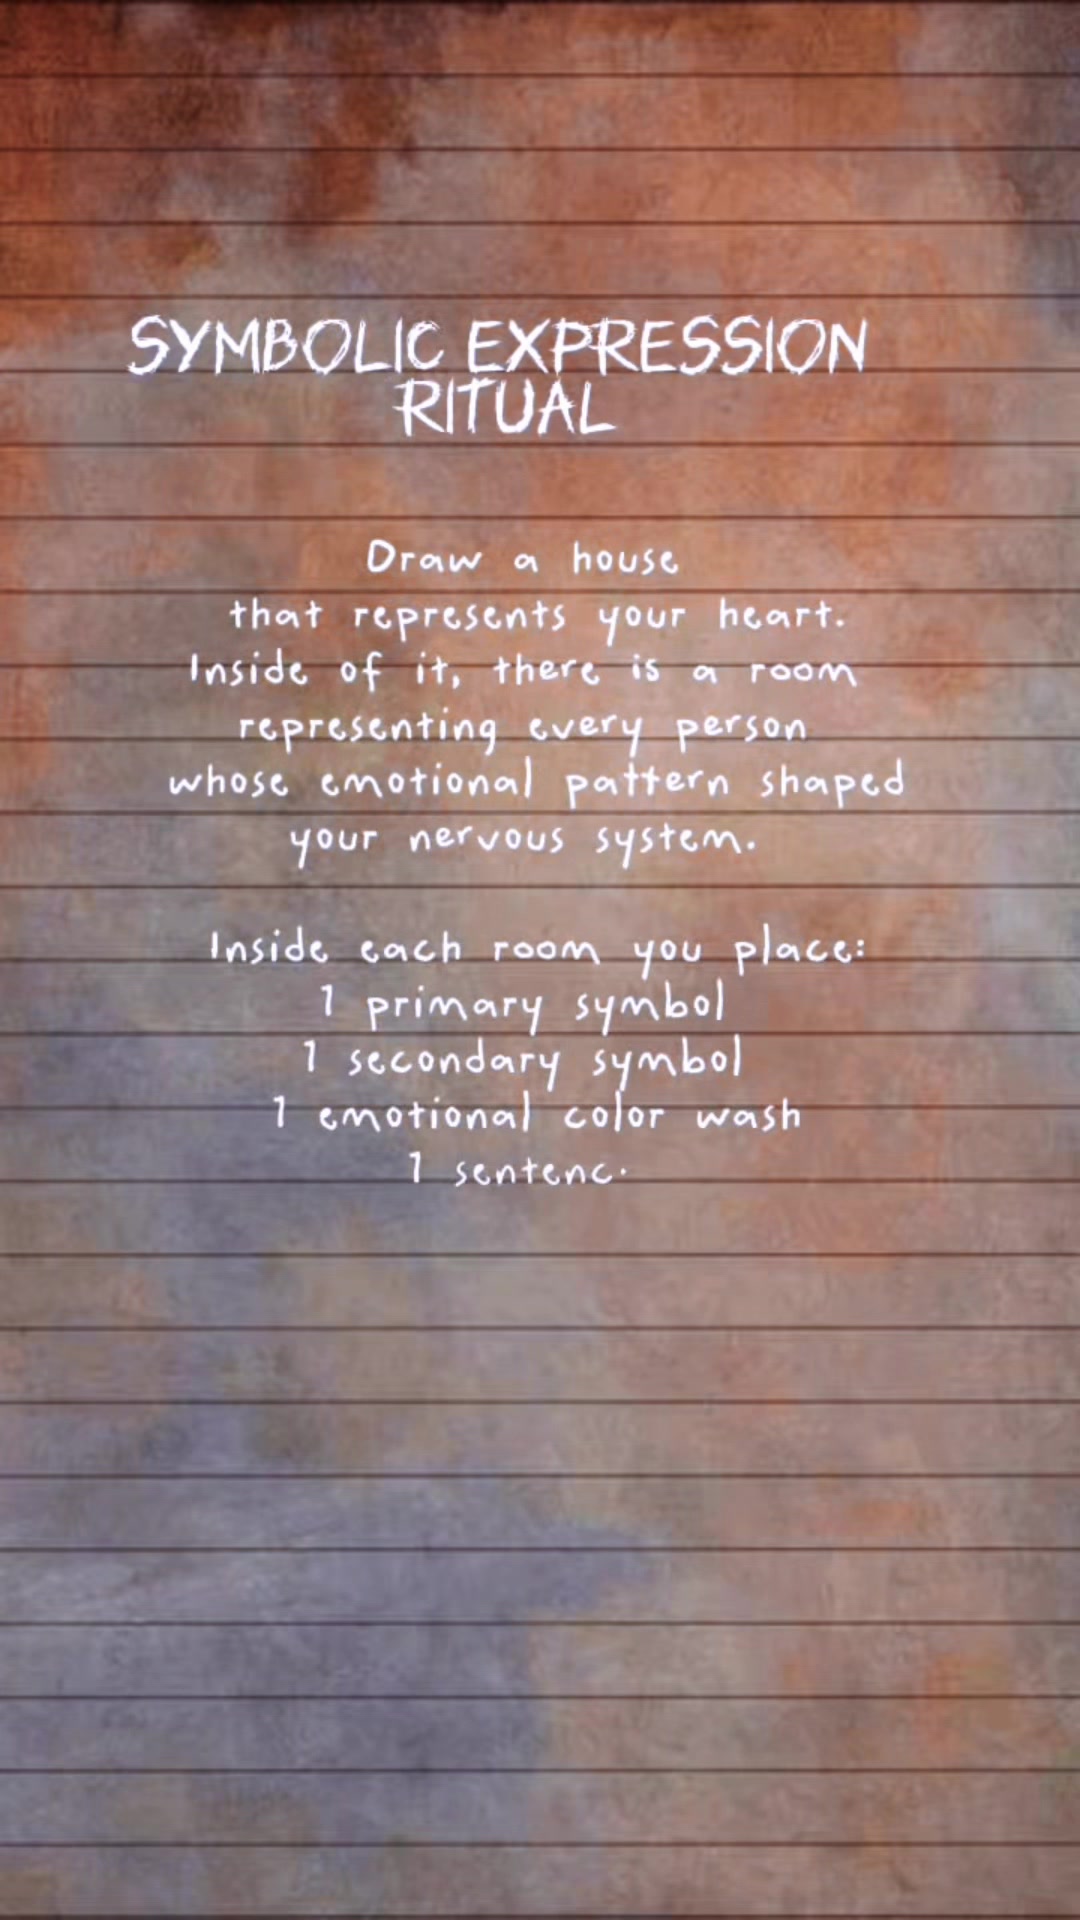 SYMBOLIC EXPRESSION
RITUAL
Draw a house
that represents your heart.
Inside of it, there is a room
representing every person
whose emotional pattern shaped
your nervous system.
Inside each room you place:
1 primary symbol
1 secondary symbol
1 emotional color wash
1 sentenc.